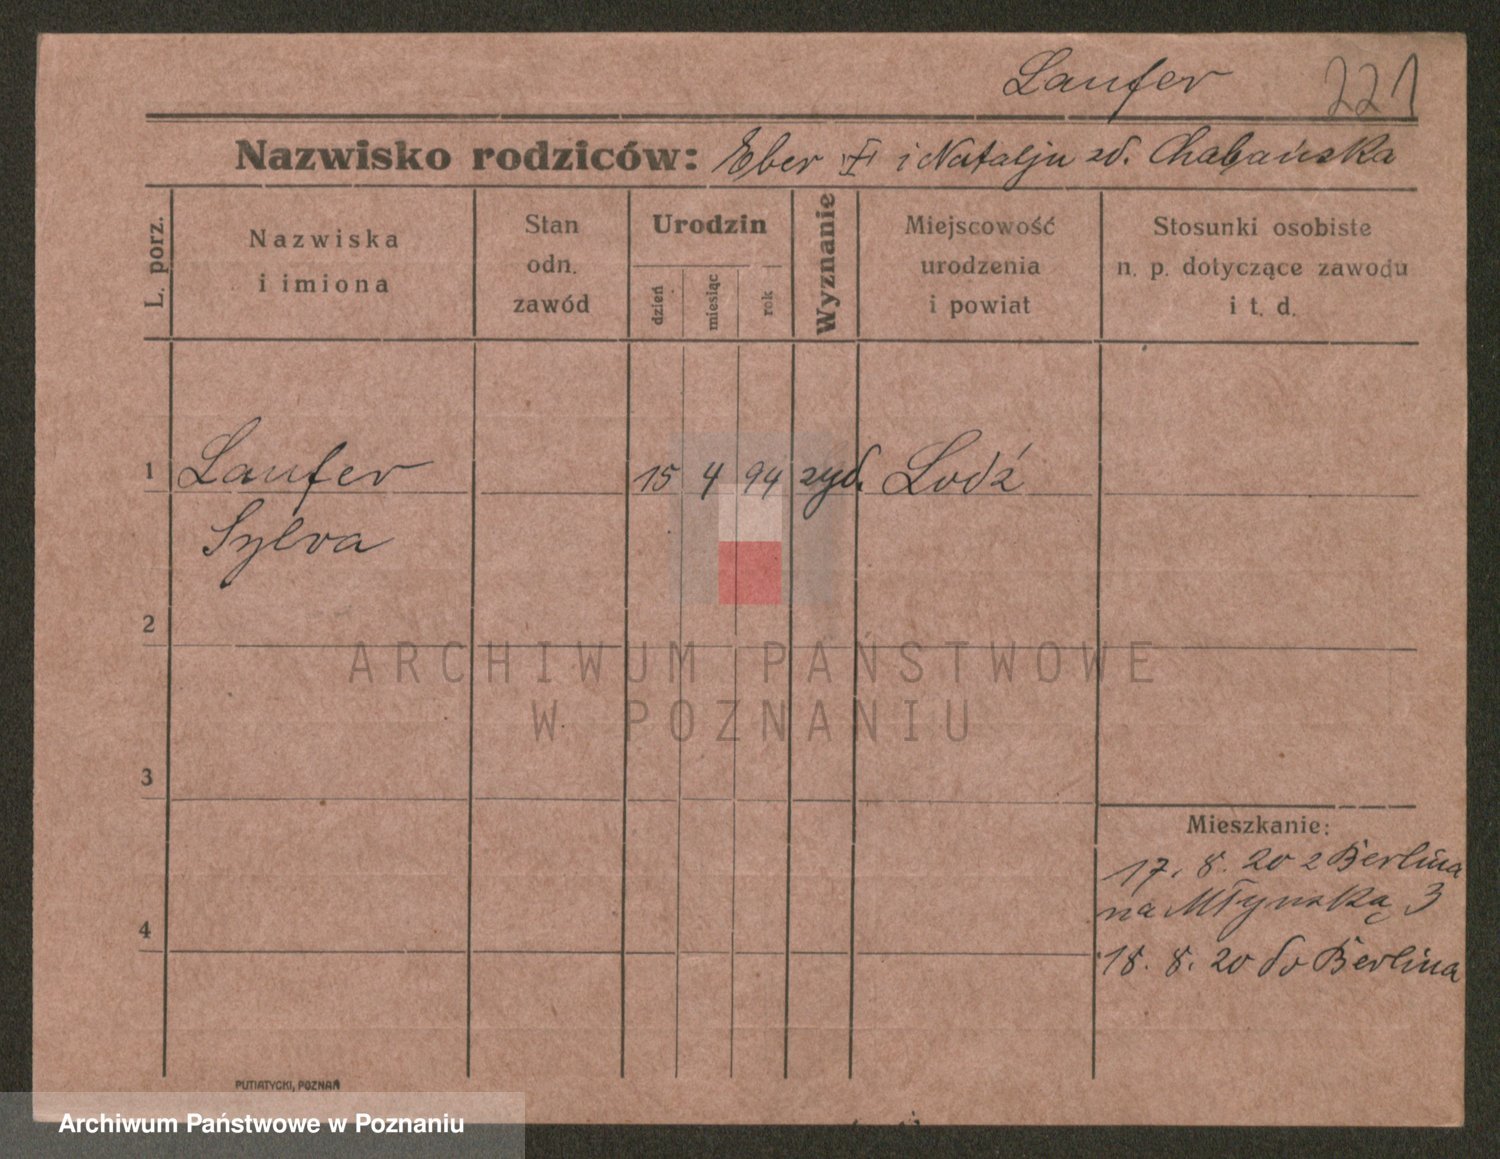 Laufer 221
Nazwisko rodziców: Eber i Natalju zd. Chabańska
L. porz.
Nazwiska
i imiona
Stan
odn.
zawód
Urodzin
dzień
miesiąc
rok
Wyznanie
Miejscowość
urodzenia
i powiat
Stosunki osobiste
n. p. dotyczące zawodu
i t. d.
1 Laufer 15 4 94 żyd. Lodź
Sylva
2
ARCHIWUM PAŃSTWOWE
W POZNANIU
3
Mieszkanie:
17. 8. 20 z Berlina
na Młyńską 3
4
18. 8. 20 do Berlina
PUTIATYCKI, POZNAŃ
Archiwum Państwowe w Poznaniu